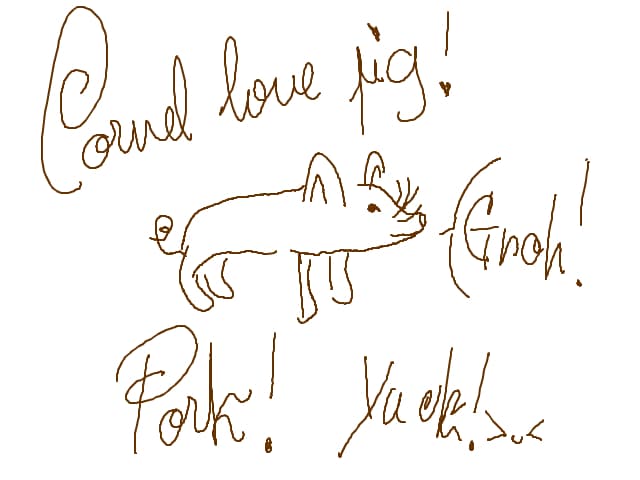 Cornel love pig!
Groh!
Pork! Yack! >.<